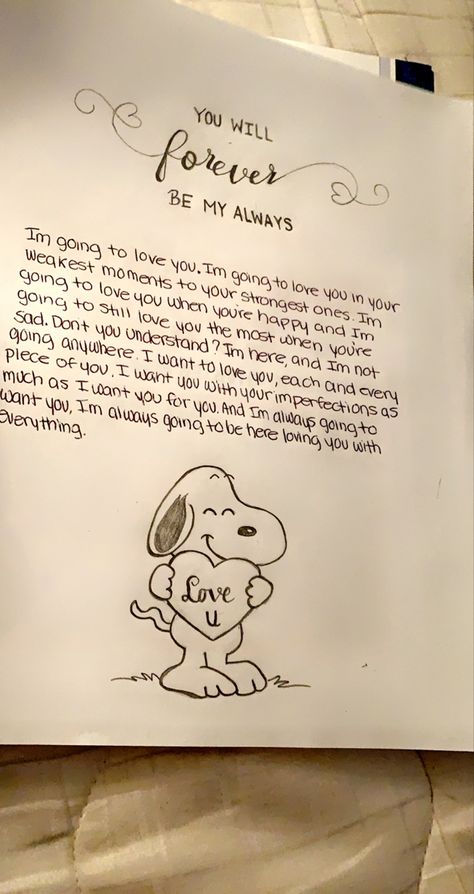 YOU WILL
forever
BE MY ALWAYS
Im going to love you. Im going to love you in your
weakest moments to your strongest ones. Im
going to love you when you're happy and Im
going to still love you the most when you're
sad. Don't you understand? Im here, and Im not
going anywhere. I want to love you, each and every
piece of you. I want you with your imperfections as
much as I want you for you. And Im always going to
want you, Im always going to be here loving you with
everything.
Love
u